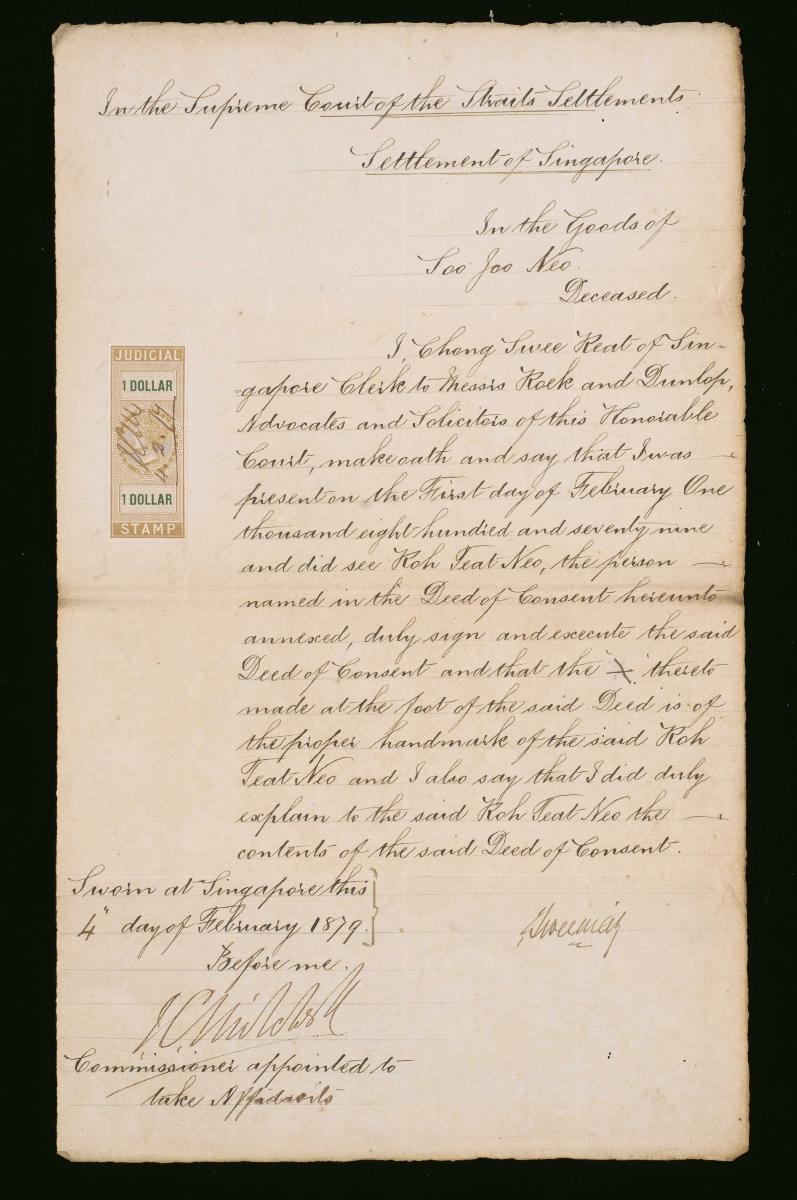 In the Supreme Court of the Straits Settlements
Settlement of Singapore.
In the Goods of
Soo Joo Neo.
Deceased.
JUDICIAL
1 DOLLAR
4.2.79
1 DOLLAR
STAMP
I, Chong Swee Keat of Sin=
=gapore Clerk to Messrs Roek and Dunlop,
Advocates and Solicitors of this Honorable
Court, make oath and say that I was —
present on the First day of February One
thousand eight hundred and seventy nine
and did see Koh Teat Neo, the person —
named in the Deed of Consent hereunto
annexed, duly sign and execute the said
Deed of Consent and that the "X" thereto
made at the foot of the said Deed is of
the proper handmark of the said Koh
Teat Neo and I also say that I did duly
explain to the said Koh Teat Neo the —
contents of the said Deed of Consent.
Sworn at Singapore this
4" day of February 1879.
Before me.
Commissioner appointed to
take Affidavits